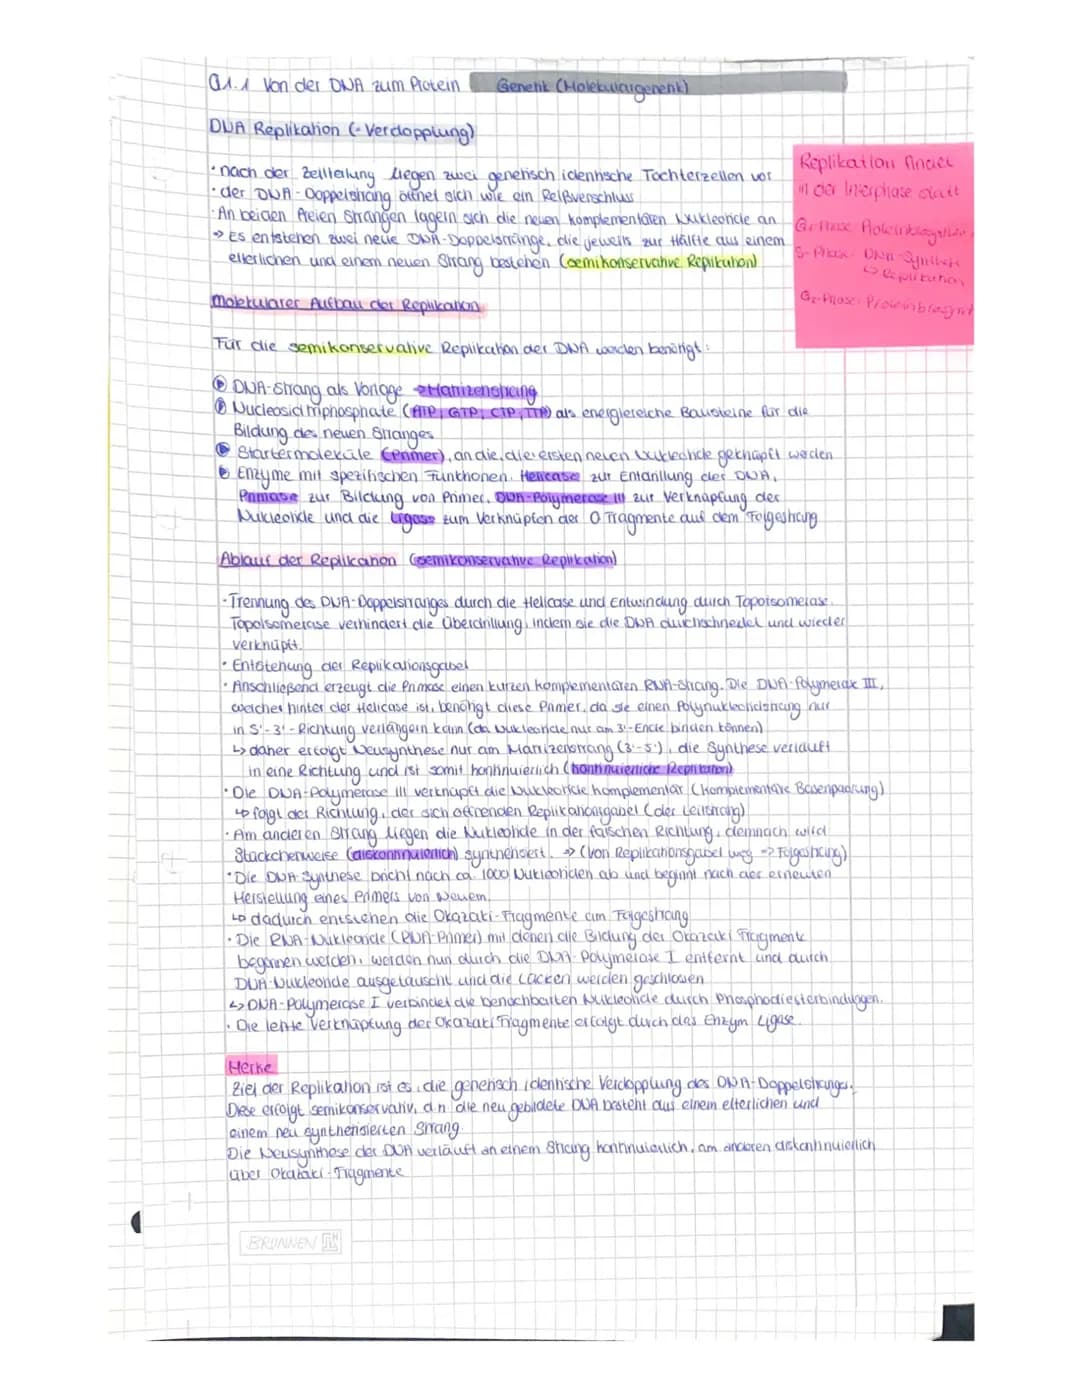 Q1.1 Von der DNA zum Protein Genetik (Molekulargenetik)
DNA Replikation (-Verdopplung)
• nach der Zellteilung liegen zwei genetisch identische Tochterzellen vor
• der DNA-Doppelstrang öffnet sich wie ein Reißverschluss
• An beiden freien Strängen lagern sich die neuen komplementären Nukleotide an
→ Es entstehen zwei neue DNA-Doppelstränge, die jeweils zur Hälfte aus einem
elterlichen und einem neuen Strang bestehen (semikonservative Replikation)
Replikation findet
in der Interphase statt
G1-Phase
S-Phase: DNA-Synthese
↳ Replikation
G2-Phase:
Molekularer Aufbau der Replikation
Für die semikonservative Replikation der DNA werden benötigt:
DNA-Strang als Vorlage → Matrizenstrang
Nucleosidtriphosphate (ATP, GTP, CTP, TTP) als energiereiche Bausteine für die
Bildung des neuen Stranges
Startermoleküle (Primer), an die die ersten neuen Nukleotide geknüpft werden
Enzyme mit spezifischen Funktionen. Helicase zur Entdrillung der DNA,
Primase zur Bildung von Primer, DNA-Polymerase III zur Verknüpfung der
Nukleotide und die Ligase zum Verknüpfen der O Fragmente auf dem Folgestrang
Ablauf der Replikation (semikonservative Replikation)
• Trennung des DNA-Doppelstranges durch die Helicase und Entwindung durch Topoisomerase.
Topoisomerase verhindert die Überdrillung, indem sie die DNA durchschneidet und wieder
verknüpft.
• Entstehung der Replikationsgabel
• Anschließend erzeugt die Primase einen kurzen komplementären RNA-Strang. Die DNA-Polymerase III,
welcher hinter der Helicase ist, benötigt diese Primer, da sie einen Polynukleotidstrang nur
in 5'-3'-Richtung verlängern kann (da Nukleotide nur am 3'-Ende binden können)
↳ daher erfolgt Neusynthese nur am Matrizenstrang (3'-5'), die Synthese verläuft
in eine Richtung und ist somit kontinuierlich (kontinuierliche Replikation)
• Die DNA-Polymerase III verknüpft die Nukleotide komplementär (komplementäre Basenpaarung)
↳ folgt der Richtung, der sich öffnenden Replikationsgabel (der Leitstrang)
• Am anderen Strang liegen die Nukleotide in der falschen Richtung, demnach wird
Stückchenweise (diskontinuierlich) synthetisiert. => (von Replikationsgabel weg => Folgestrang)
• Die DNA-Synthese bricht nach ca. 1000 Nukleotiden ab und beginnt nach der erneuten
Herstellung eines Primers von Neuem.
↳ dadurch entstehen die Okazaki-Fragmente am Folgestrang
• Die RNA-Nukleotide (RNA-Primer) mit denen die Bildung der Okazaki Fragmente
begonnen werden, werden nun durch die DNA-Polymerase I entfernt und durch
DNA-Nukleotide ausgetauscht und die Lücken werden geschlossen
↳ DNA-Polymerase I verbindet die benachbarten Nukleotide durch Phosphodiesterbindungen.
• Die letzte Verknüpfung der Okazaki Fragmente erfolgt durch das Enzym Ligase.
Merke
Ziel der Replikation ist es, die genetisch identische Verdopplung des DNA-Doppelstrangs.
Diese erfolgt semikonservativ, d.h die neu gebildete DNA besteht aus einem elterlichen und
einem neu synthetisierten Strang.
Die Neusynthese der DNA verläuft an einem Strang kontinuierlich, am anderen diskontinuierlich
über Okazaki-Fragmente
BRUNNEN